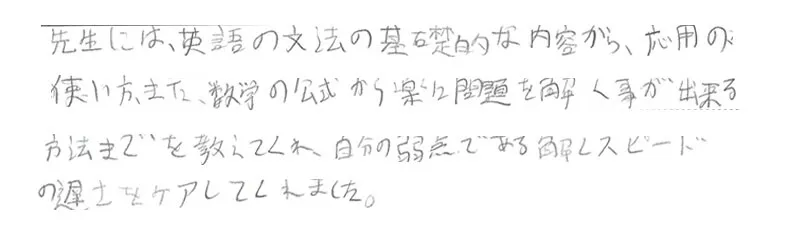 先生には、英語の文法の基礎的な内容から、応用の
使い方、また、数学の公式から楽に問題を解く事が出来る
方法まで、を教えてくれ、自分の弱点である解くスピード
の遅さをケアしてくれました。